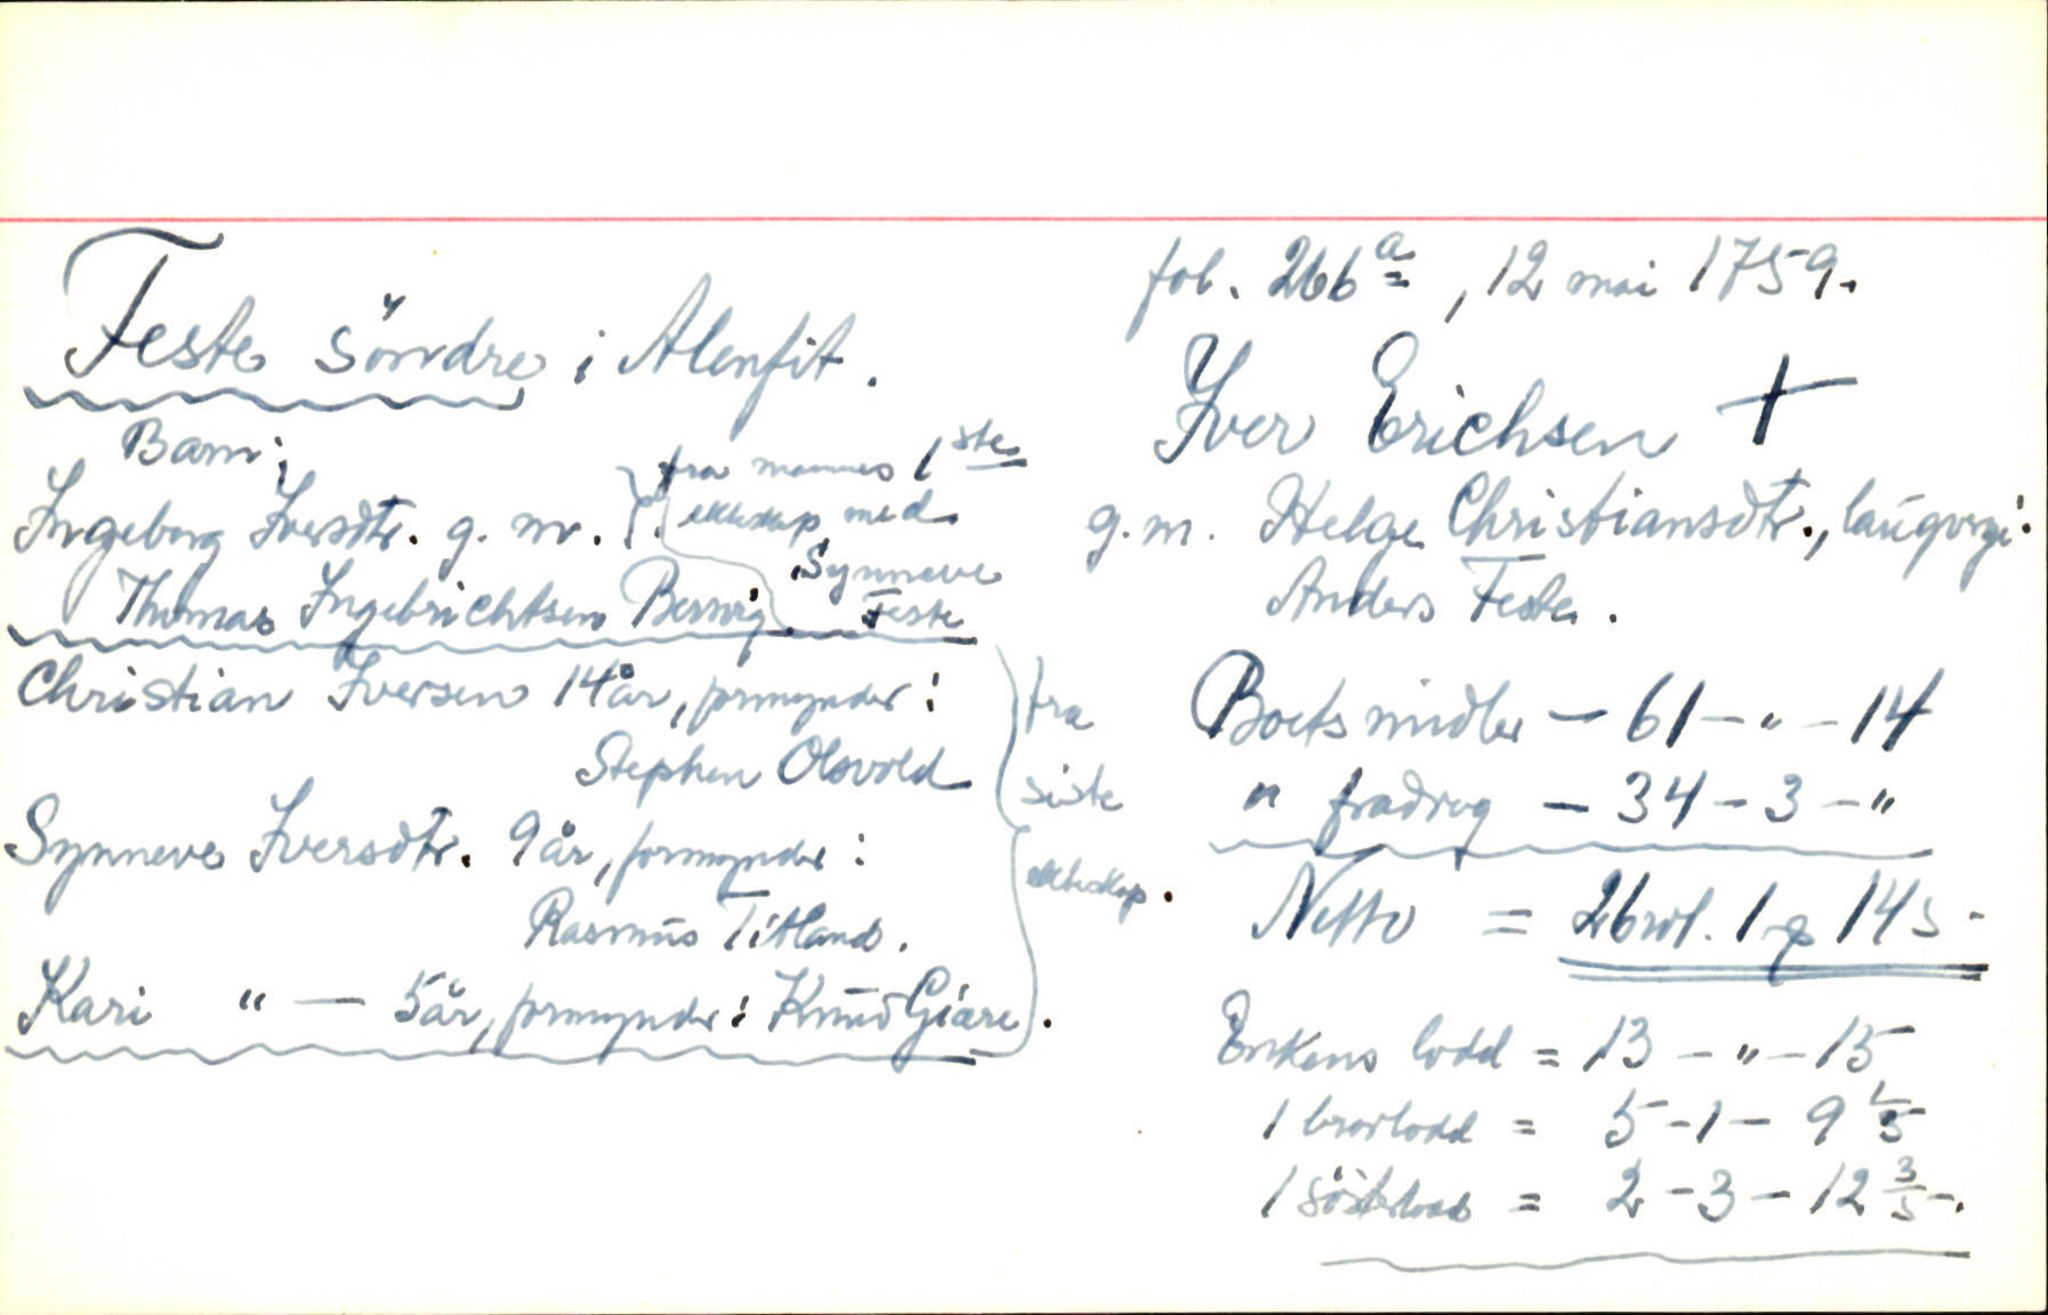 Feste söndre i Alenfit.
Barn:
Ingeborg Iversdtr. g. m.
Thomas Ingebrichtsen
fra mannes 1ste
ekteskap med
Synneve
Feste
Christian Iversen 14 år, formynder:
Stephen Olsvold
Synneve Iversdtr. 9 år, formynder:
Rasmus Titland.
Kari " — 5 år, formynder: Knud Giære.
fra
siste
ekteskap.
fol. 266a, 12 mai 1759.
Iver Erichsen +
g.m. Helge Christiansdtr., laugvrge:
Anders Feste.
Boets midler — 61 - " - 14
" fradrag — 34 - 3 - "
Netto = 26 rdl. 1 14 s -
Enkens lodd = 13 - " - 15
1 brorlodd = 5 - 1 - 9 1/5
1 sösterlodd = 2 - 3 - 12 3/5 -.